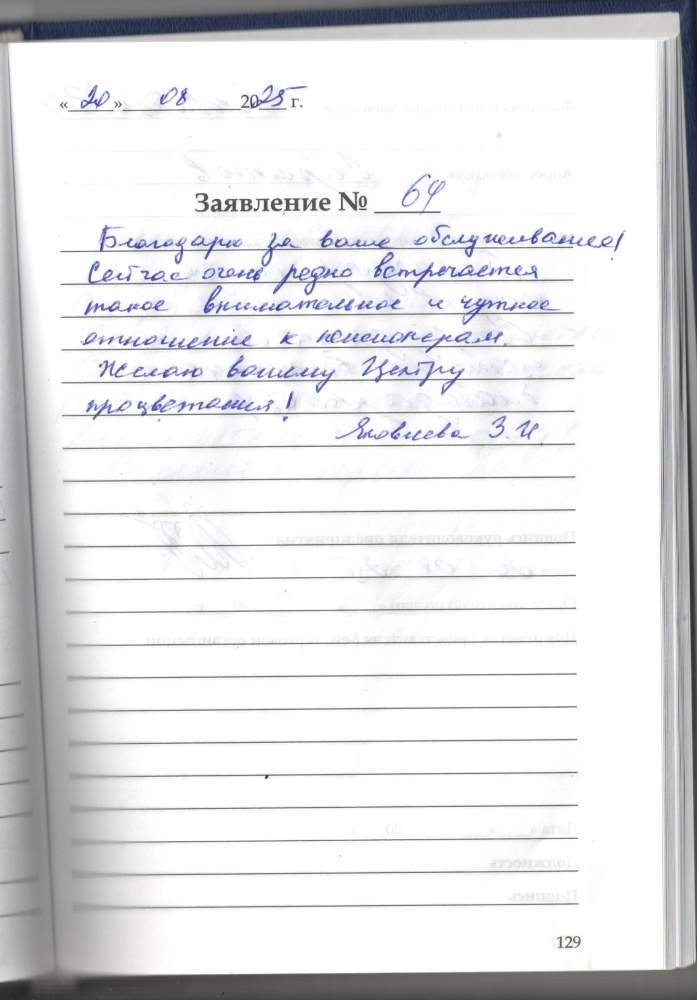 «20» 08 2025 г.
Заявление № 64
Благодарю за ваше обслуживание!
Сейчас очень редко встречается
такое внимательное и чуткое
отношение к пенсионерам.
Желаю вашему Центру
процветания!
Яковлева З.И.
129